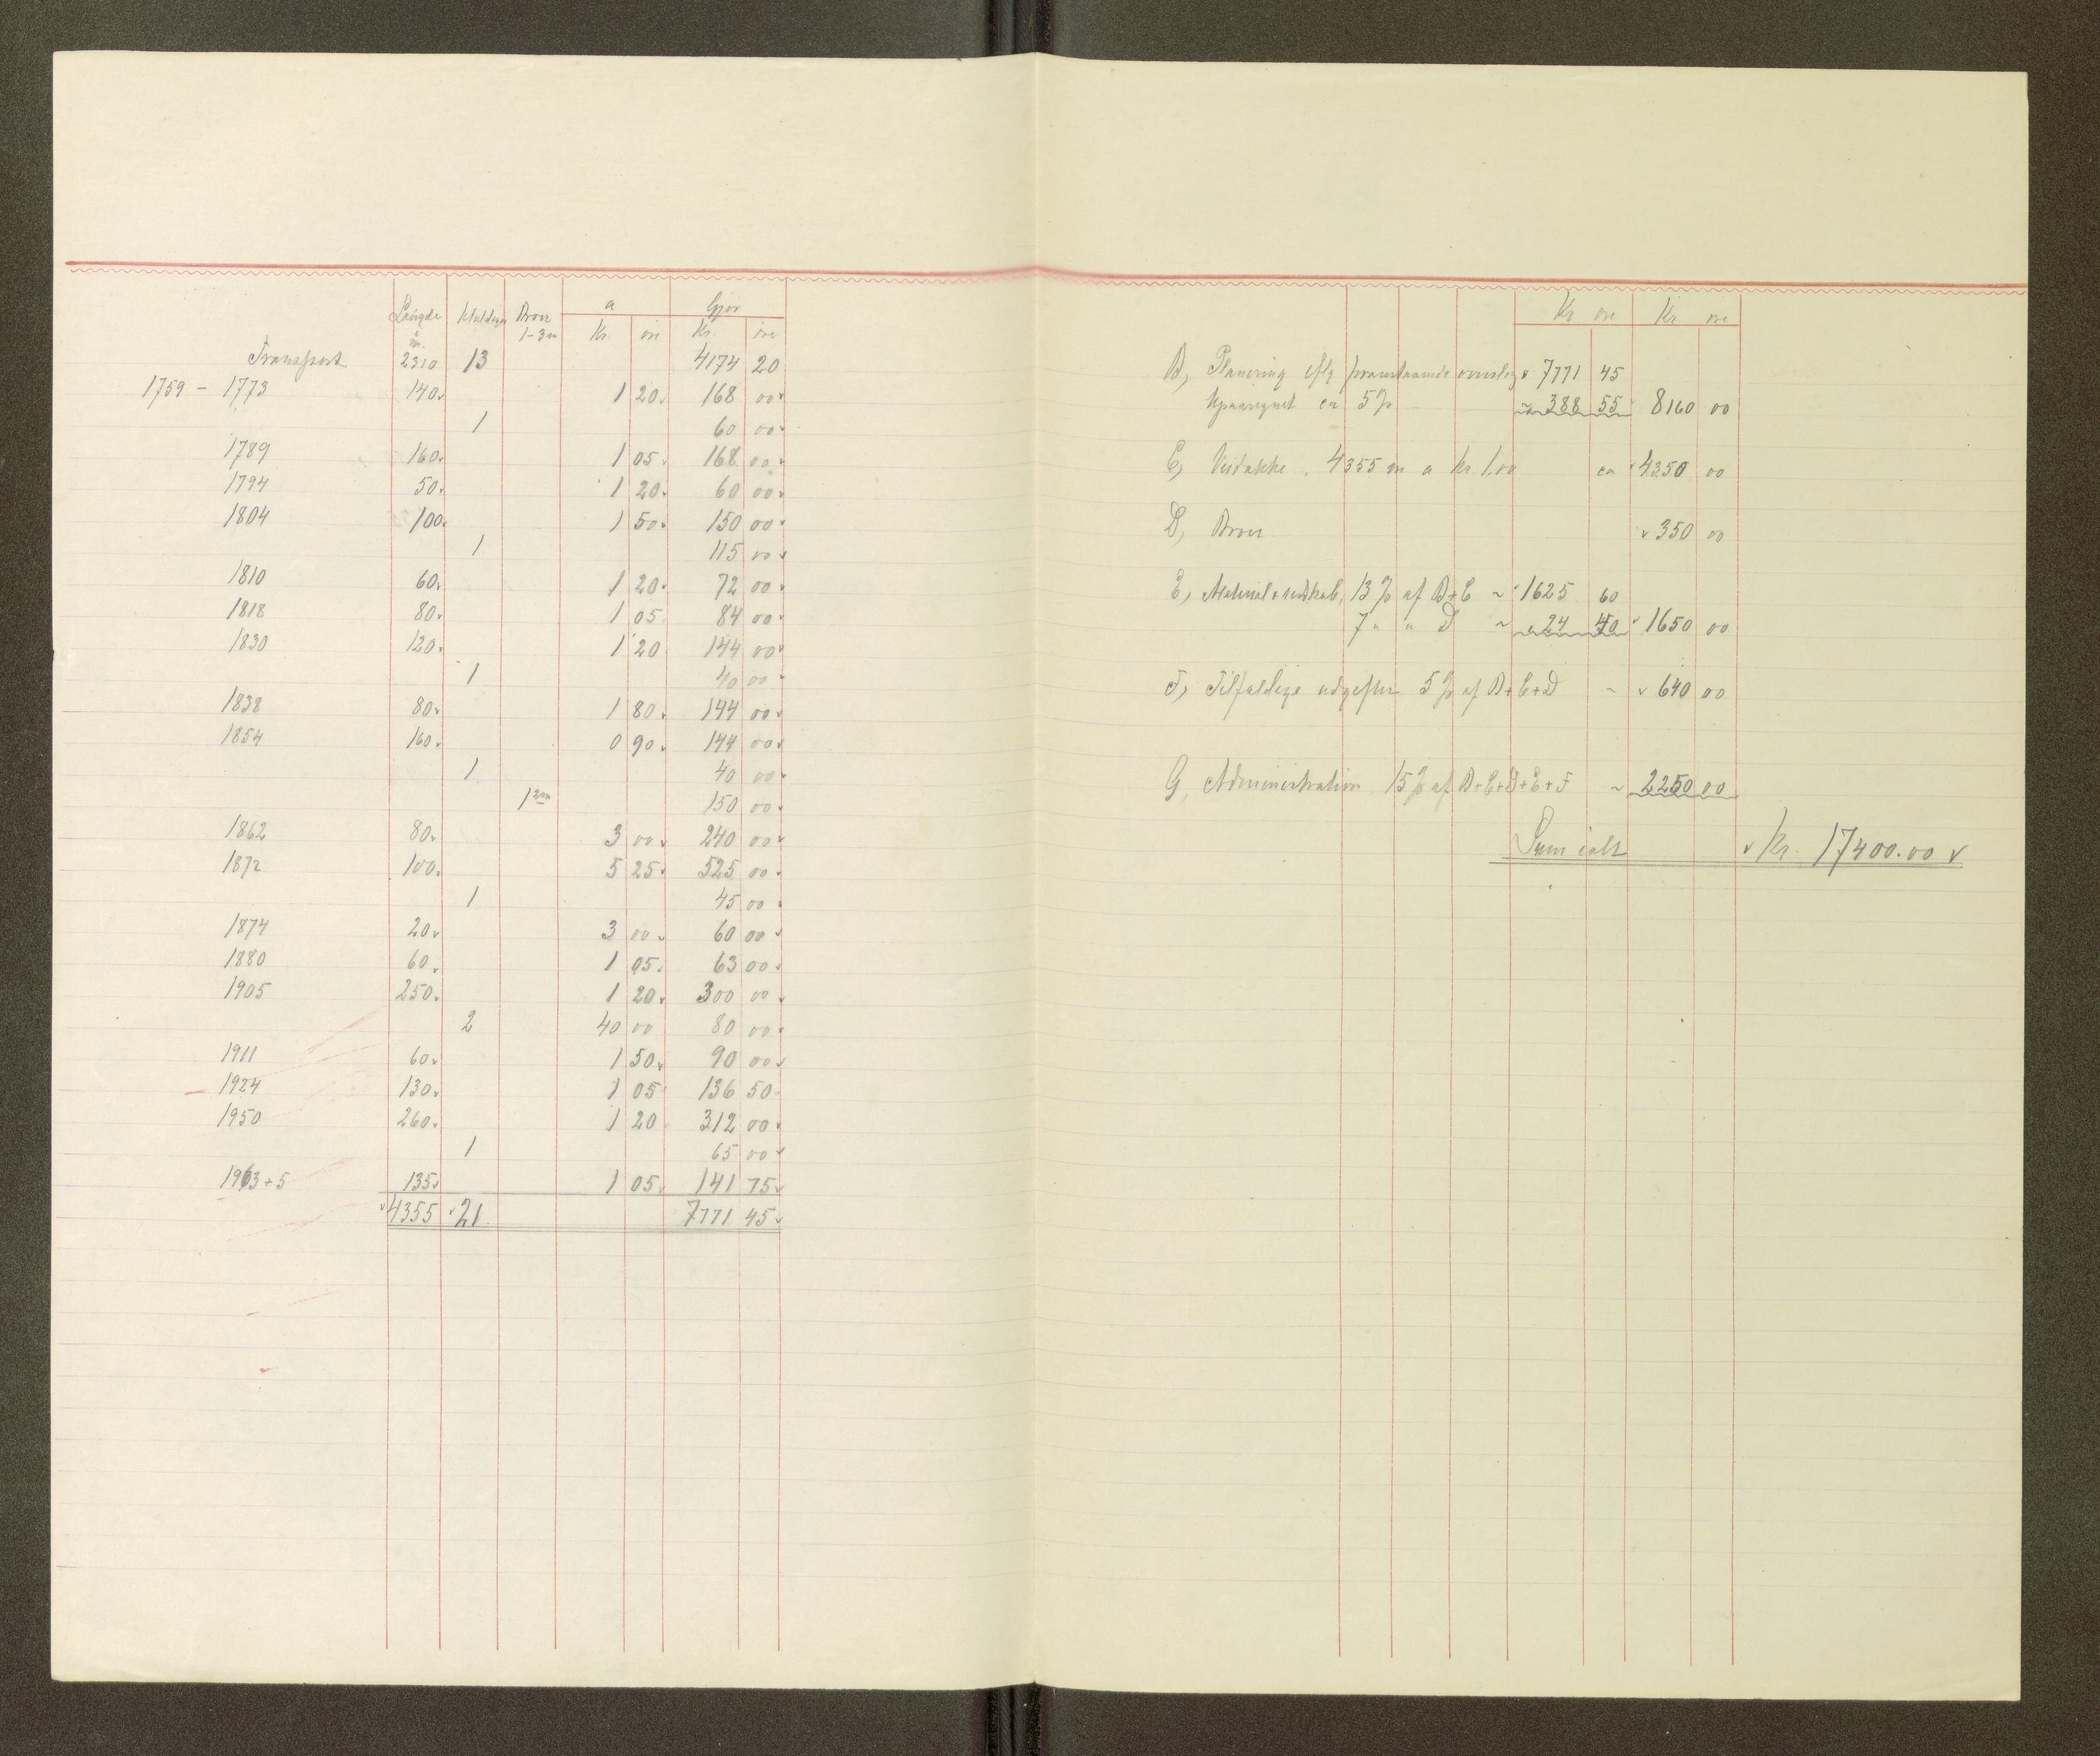 Længde Broer a Gjør
m. 1-3 m Kr. øre Kr. øre
Transport 2310 13 4174 20
1759 - 1773 140 1 20 168 00
1 60 00
1789 160 1 05 168 00
1794 50 1 20 60 00
1804 100 1 50 150 00
1 115 00
1810 60 1 20 72 00
1818 80 1 05 84 00
1830 120 1 20 144 00
1 40 00
1838 80 1 80 144 00
1854 160 0 90 144 00
1 40 00
1 2m 150 00
1862 80 3 00 240 00
1872 100 5 25 525 00
1 45 00
1874 20 3 00 60 00
1880 60 1 05 63 00
1905 250 1 20 300 00
2 40 00 80 00
1911 60 1 50 90 00
1924 130 1 05 136 50
1950 260 1 20 312 00
1 65 00
1963 + 5 135 1 05 141 75
4355 21 7771 45
Kr øre Kr øre
B, Planering iflg foranstaaende overslag 7771 45
Uparegnet ca 5 % ~ 388 55 8160 00
C, Veidække . 4355 m a kr 1,00 ca 4350 00
D, Broer 350 00
E, Material & redskab, 13 % af B + C ~ 1625 60
7 " " D ~ 24 40 1650 00
F, Tilfældige udgifter 5 % af B + C + D ~ 640 00
G, Administration 15 % af B + C + D + E + F ~ 2250 00
Sum ialt Kr. 17400.00